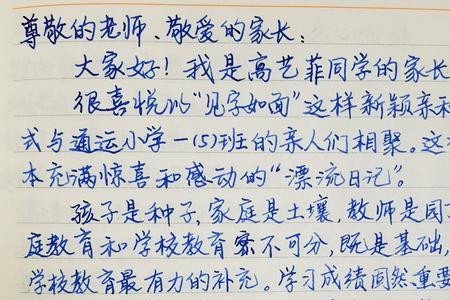 尊敬的老师、敬爱的家长:
大家好!我是高艺菲同学的家长
很喜悦以“见字如面”这样新颖亲和
式与通运小学一(5)班的亲人们相聚。这
本充满惊喜和感动的“漂流日记”。
孩子是种子,家庭是土壤,教师是园丁
庭教育和学校教育密不可分,既是基础,
学校教育最有力的补充。学习成绩固然重要